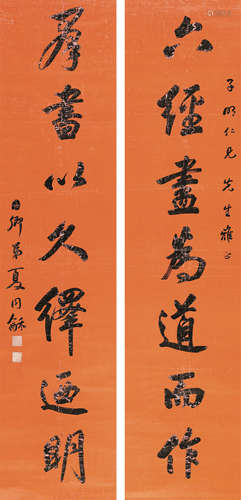 子明仁兄先生雅正
六經盡為道而作
羣書以久繹迺明
用卿弟夏同龢